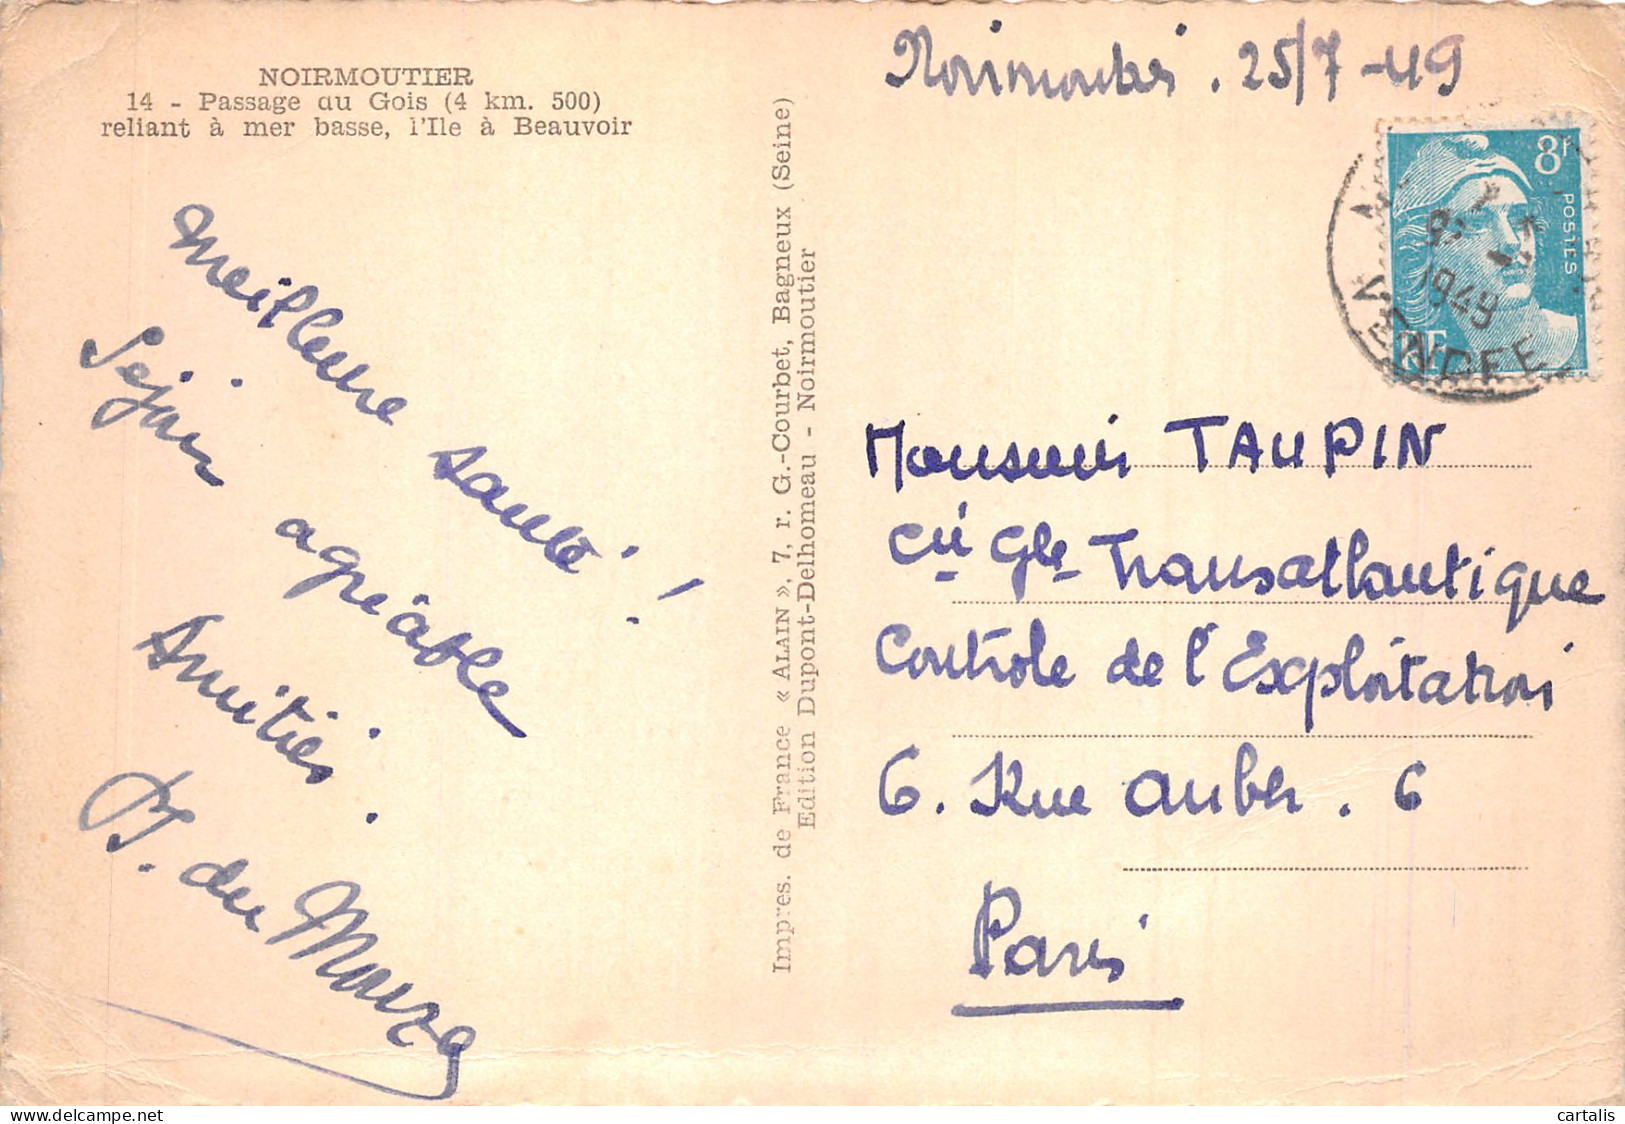 NOIRMOUTIER
14 - Passage au Gois (4 km. 500)
reliant à mer basse, l'Ile à Beauvoir
Meilleure santé !
Séjour agréable
Amitiés.
du
Impres. de France « ALAIN », 7, r. G.-Courbet, Bagneux (Seine)
Edition Dupont-Delhomeau - Noirmoutier
Noirmoutier. 25/7-49
8f
POSTES
RF
1949
VENDEE
Monsieur TAUPIN
Cie Gle Transatlantique
Contrôle de l'Exploitation
6. Rue Auber. 6
Paris
cartalis